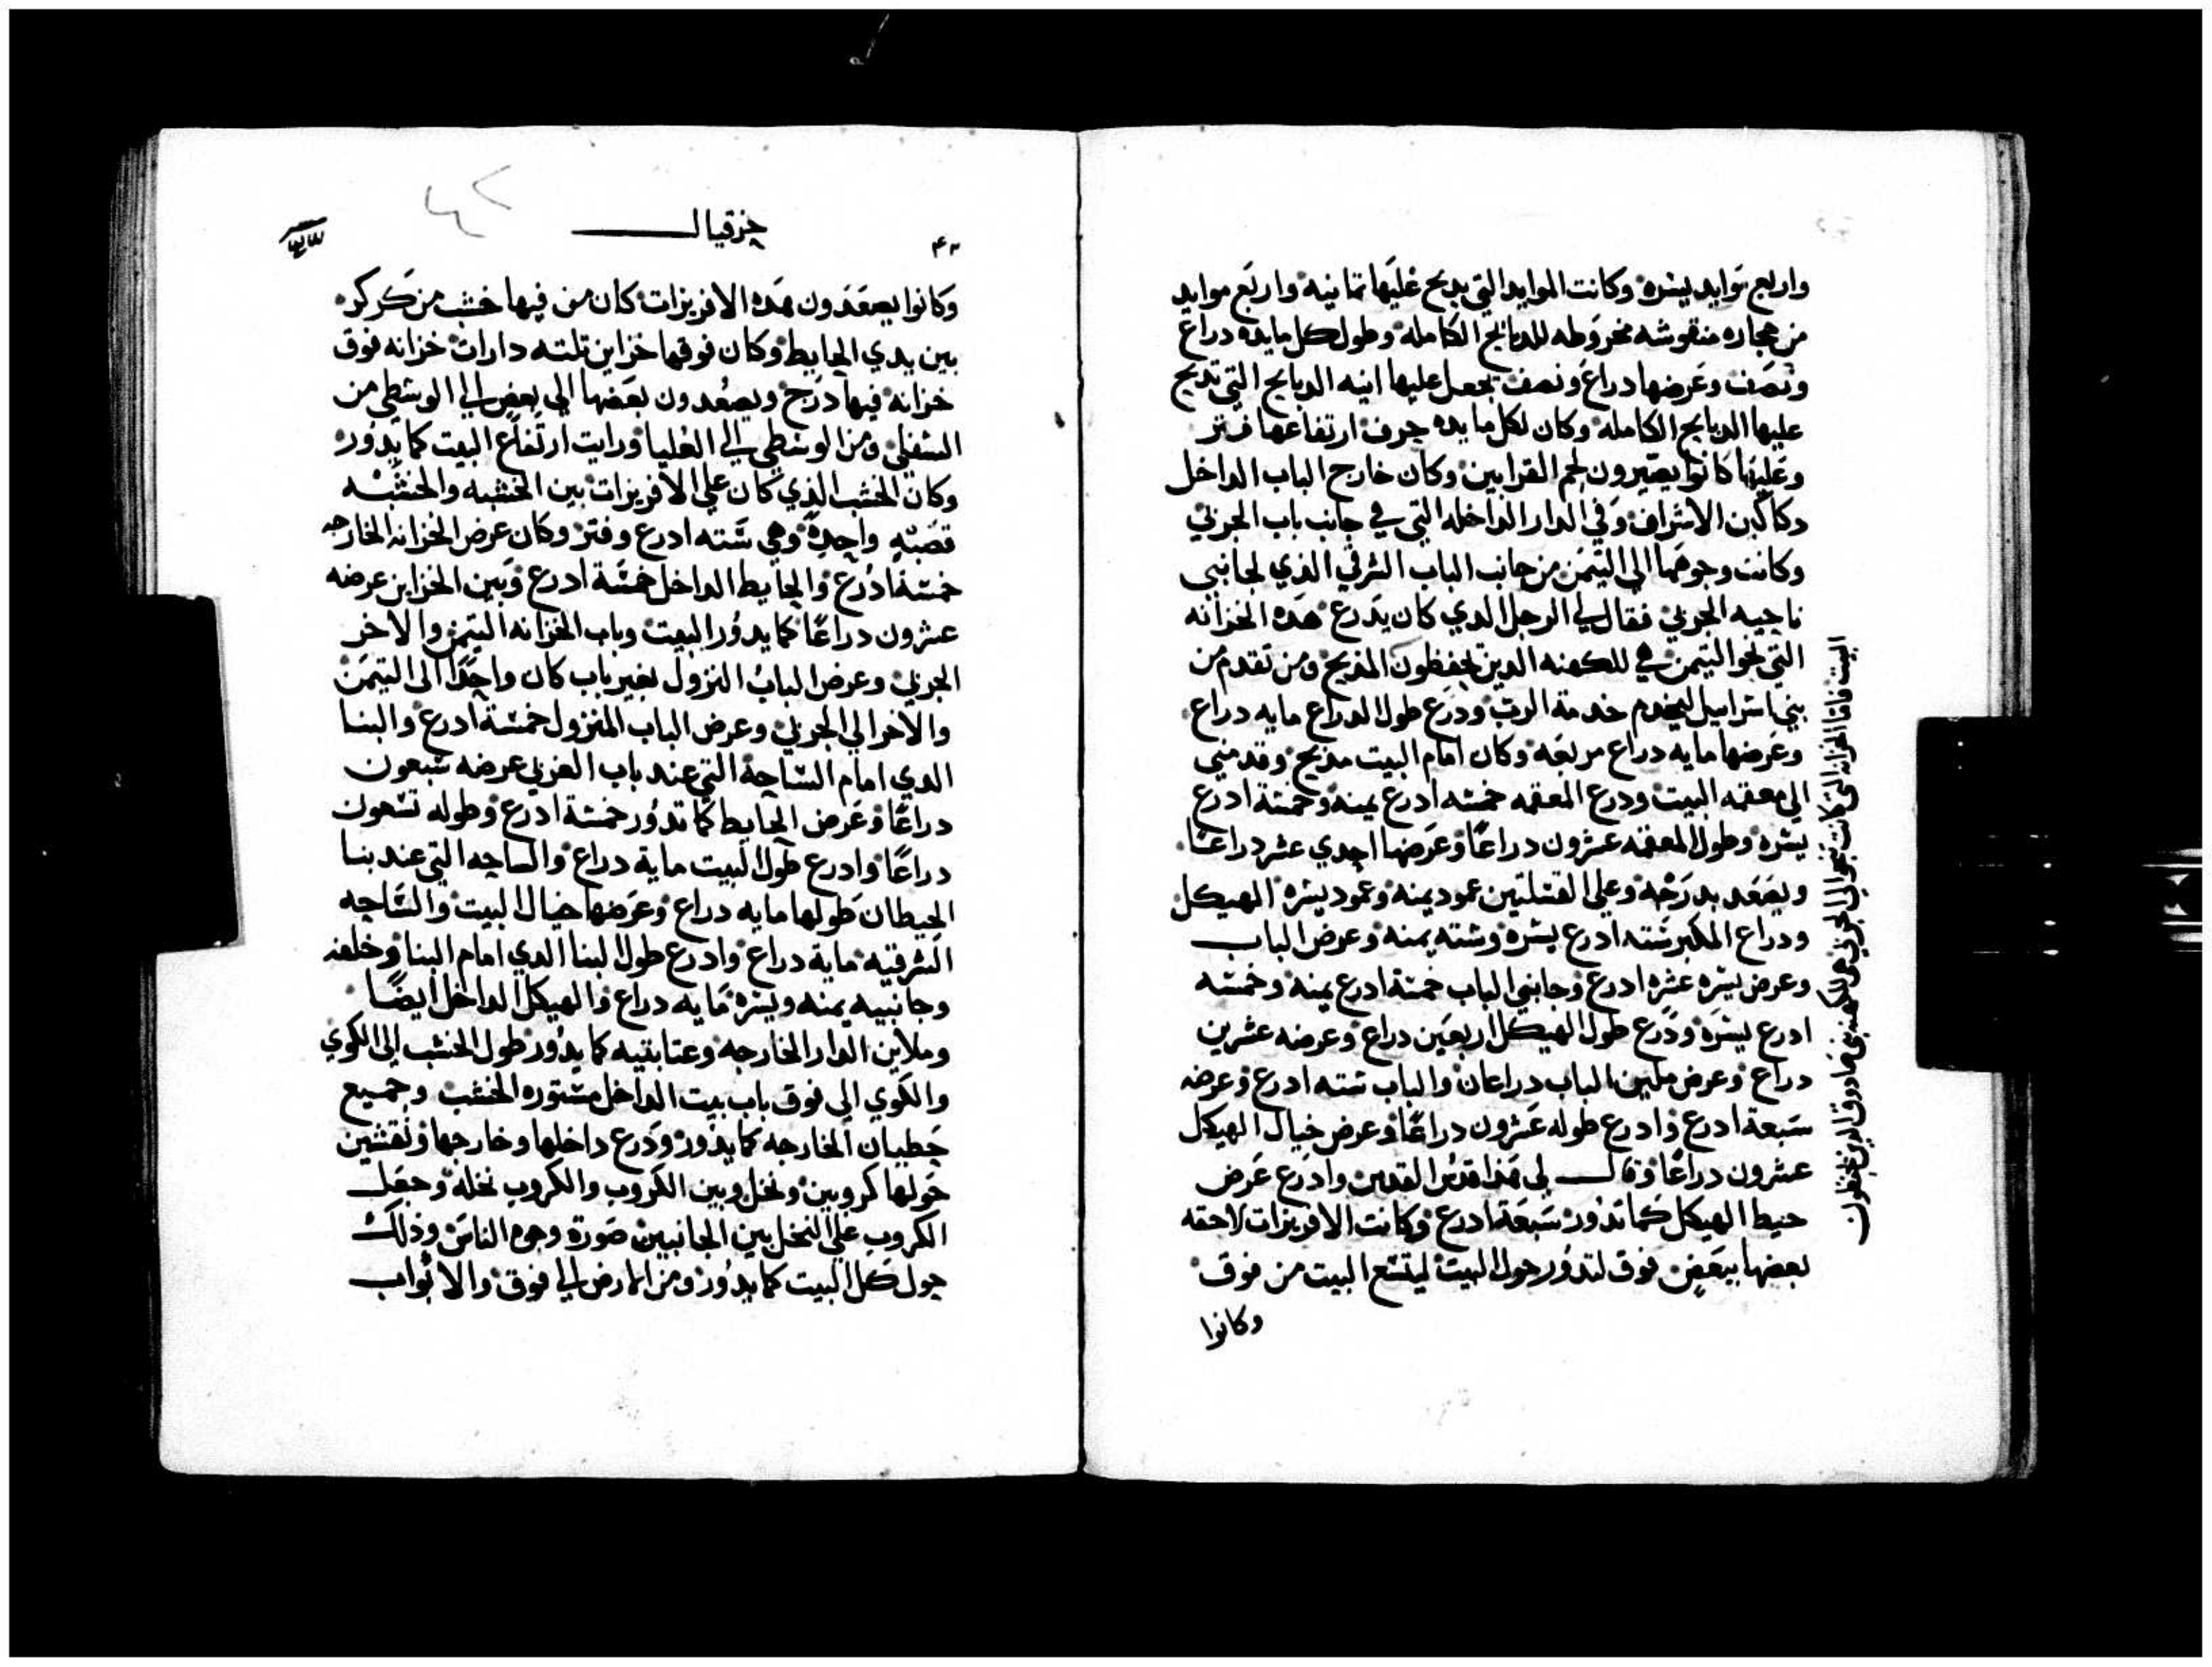 واربع موايد يسره وكانت الموايد التي يدبح عليها تمانيه واربع موايد
من حجاره منقوشه مخروطه للدبايح الكامله وطول كل مايده دراع
ونصف وعرضها دراع ونصف يجعل عليها انيه الدبايح التي تدبح
عليها الدبايح الكامله وكان لكل مايده حرف ارتفاعها فتر
وعليها كانوا يصيرون لحم القرابين وكان خارج الباب الداخل
دكاكين الاشراف وفي الدار الداخله التي في جانب باب الجربي
وكانت وجوهما الى التيمن من جانب الباب الشرقي الذي لجانبي
ناحيه الجربي فقال لي الرجل الدي كان يدرع هده الخزانه
التي نحو التيمن هي للكهنه الدين يحفظون المدبح ومن تقدم من
بني اسراييل ليخدم خدمة الرب ودرع طول الدراع مايه دراع
وعرضها مايه دراع مربعه وكان امام البيت مدبح وقدمني
الى معقمه البيت ودرع المعقمه خمسه ادرع يمنه وخمسة ادرع
يسره وطول المعقمه عشرون دراعًا وعرضها احدي عشر دراعًا
ويصعد بدرجه وعلي القتلتين عمود يمنه وعمود يسره الهيكل
ودراع المكبر سته ادرع يسره وسته يمنه وعرض الباب
وعرض يسره عشره ادرع وجانبي الباب خمسة ادرع يمنه وخمسه
ادرع يسره ودرع طول الهيكل اربعين دراع وعرضه عشرين
دراع وعرض ملبن الباب دراعان والباب سته ادرع وعرضه
سبعة ادرع وادرع طوله عشرون دراعًا وعرض خيال الهيكل
عشرون دراعًا وقال لي هذا قدس القدس وادرع عرض
حيط الهيكل كما تدور سبعة ادرع وكانت الافريزات لاحقه
بعضها ببعض فوق لتدور حول البيت ليتسع البيت من فوق
وكانوا
البيت فاما الخزانه التي كانت نحو الي الجربي هي للكهنه بني صادوق الدين يحفظون
٤٢
حزقيال
وكانوا يصعدون هده الافريزات كان من فيها خشب من كركر
بين يدي الحايط وكان فوقها خزاين تلته دارات خزانه فوق
خزانه فيها درج ويصعدون بعضها الي بعض الي الوسطي من
السفلي ومن الوسطي الي العليا ورايت ارتفاع البيت كما يدور
وكان الخشب الذي كان علي الافريزات بين الخشبه والخشبه
قصبه واحدة وهي سته ادرع وفتر وكان عرض الخزانه الخارجه
خمسة ادرع والحايط الداخل خمسة ادرع وبين الخزاين عرضه
عشرون دراعًا كما يدور البيت وباب الخزانه التيمن والاخر
الجربي وعرض الباب النزول لغير باب كان واحدًا الى التيمن
والاخر الي الجربي وعرض الباب المنزول خمسة ادرع والبنا
الدي امام الساحة التي عند باب الغربي عرضه سبعون
دراعًا وعرض الحايط كما تدور خمسة ادرع وطوله تسعون
دراعًا وادرع طول البيت ماية دراع والساحه التي عند بنا
الحيطان طولها مايه دراع وعرضها خيال البيت والساحه
الشرقيه ماية دراع وادرع طول البنا الدي امام البنا وخلفه
وجانبيه يمنه ويسره مايه دراع والهيكل الداخل ايضًا
وملابن الدار الخارجه وعتابتيه كما يدور طول الخشب الي الكوي
والكوي الي فوق باب بيت الداخل مستوره الخشب وجميع
حطيان الخارجه كما يدور ودرع داخلها وخارجها ونقشين
حولها كروبين ونخل وبين الكروب والكروب نخله وجعل
الكروب علي النخل بين الجانبين صورة وجوه الناس وذلك
حول كل البيت كما يدور ومن الارض الي فوق والابواب